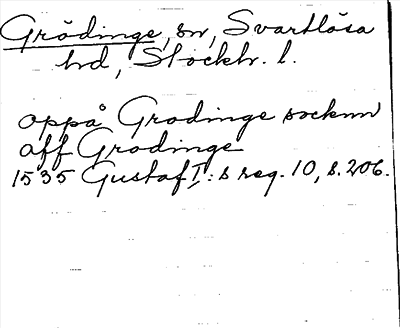 Grödinge, sn, Svartlösa
hd, Stockh. l.
oppå Grodinge socknn
aff Grodinge
1535 Gustaf I:s reg. 10, s. 206.